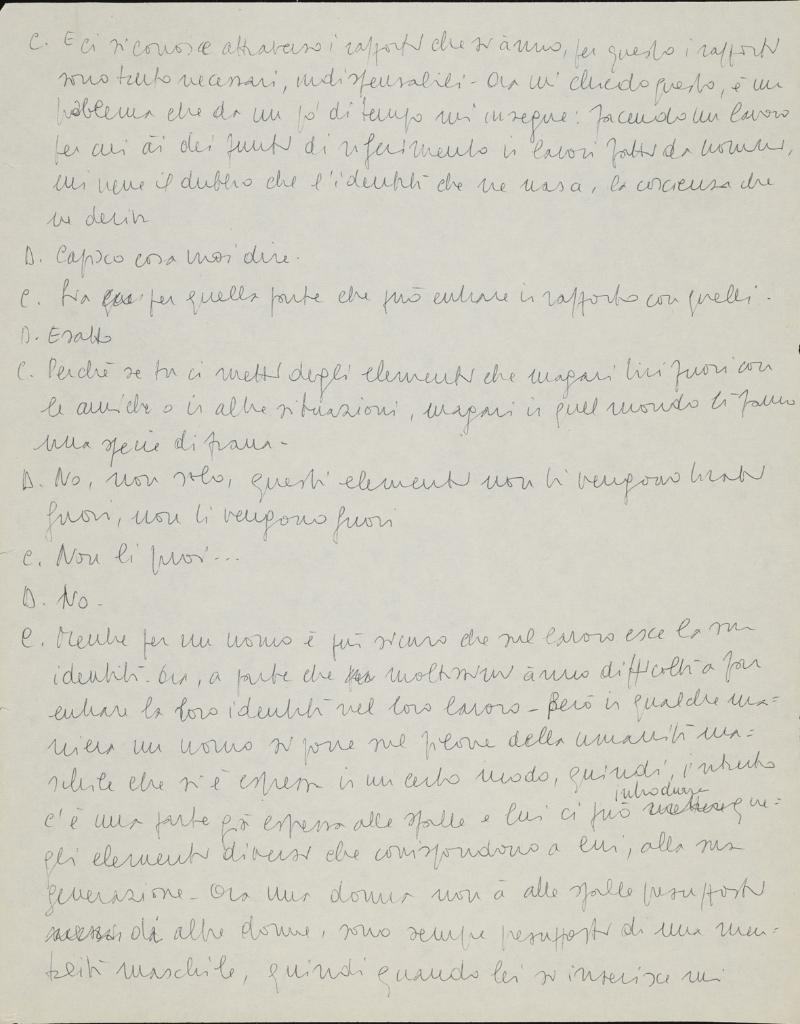 C. E ci si conosce attraverso i rapporti che si ànno, per questo i rapporti
sono tanto necessari, indispensabili - Ora mi chiedo questo, è un
problema che da un po' di tempo mi insegue: facendo un lavoro
per cui ài dei punti di riferimento in lavori fatti da uomini,
mi viene il dubbio che l'identità che ne nasca, la coscienza che
ne derivi
D. Capisco cosa vuoi dire.
C. Sia per quella parte che può entrare in rapporto con quelli.
D. Esatto
C. Perché se tu ci metti degli elementi che magari tiri fuori con
le amiche o in altre situazioni, magari in quel mondo lì fanno
una specie di frana -
D. No, non solo, questi elementi non li vengono tirati
fuori, non li vengono fuori
C. Non li puoi ...
D. No -
C. Mentre per un uomo è più sicuro che sul lavoro esce la sua
identità. Ora, a parte che moltissimi ànno difficoltà a far
entrare la loro identità nel loro lavoro - Però in qualche ma=
niera un uomo si pone sul filone della umanità ma=
schile che si è espressa in un certo modo, quindi, intanto
c'è una parte già espressa alle spalle e lui ci può introdurre que=
gli elementi diversi che corrispondono a lui, alla sua
generazione - Ora una donna non à alle spalle presupposti
di altre donne, sono sempre presupposti di una men=
talità maschile, quindi quando lei si inserisce mi